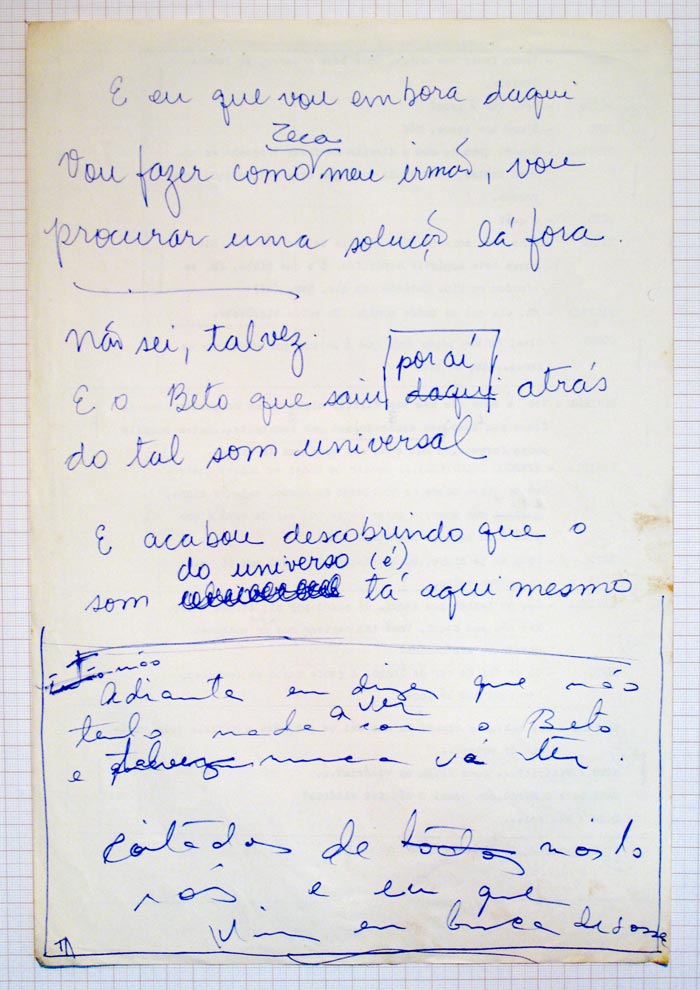 E eu que vou embora daqui
Zeca
Vou fazer como meu irmão, vou
procurar uma solução lá fora.
Não sei, talvez.
por aí
E o Beto que saiu daqui atrás
do tal som universal
E acabou descobrindo que o
do universo (é)
som tá aqui mesmo
não
Adianta eu dizer que não
tenho nada a ver com o Beto
e talvez nunca vá ter.
Coitados de todos nós
nós e eu que
vim em busca